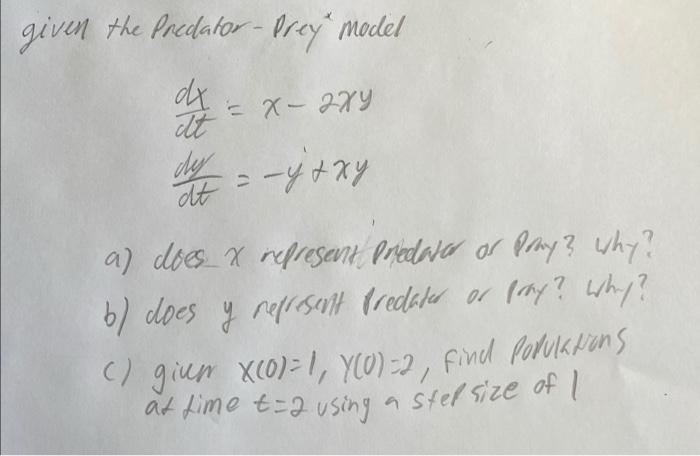 given the Predator-Prey* model
dx/dt = x - 2xy
dy/dt = -y + xy
a) does x represent Predator or Pray? why?
b) does y represent Predator or Pray? why?
c) given x(0)=1, y(0)=2, find Populations
at time t=2 using a step size of 1